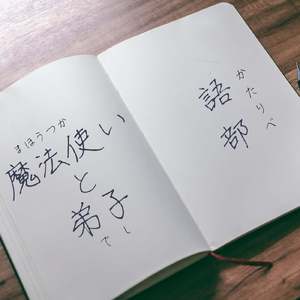 まほうつか
魔法使い
と
弟子
でし
かたりべ
語部